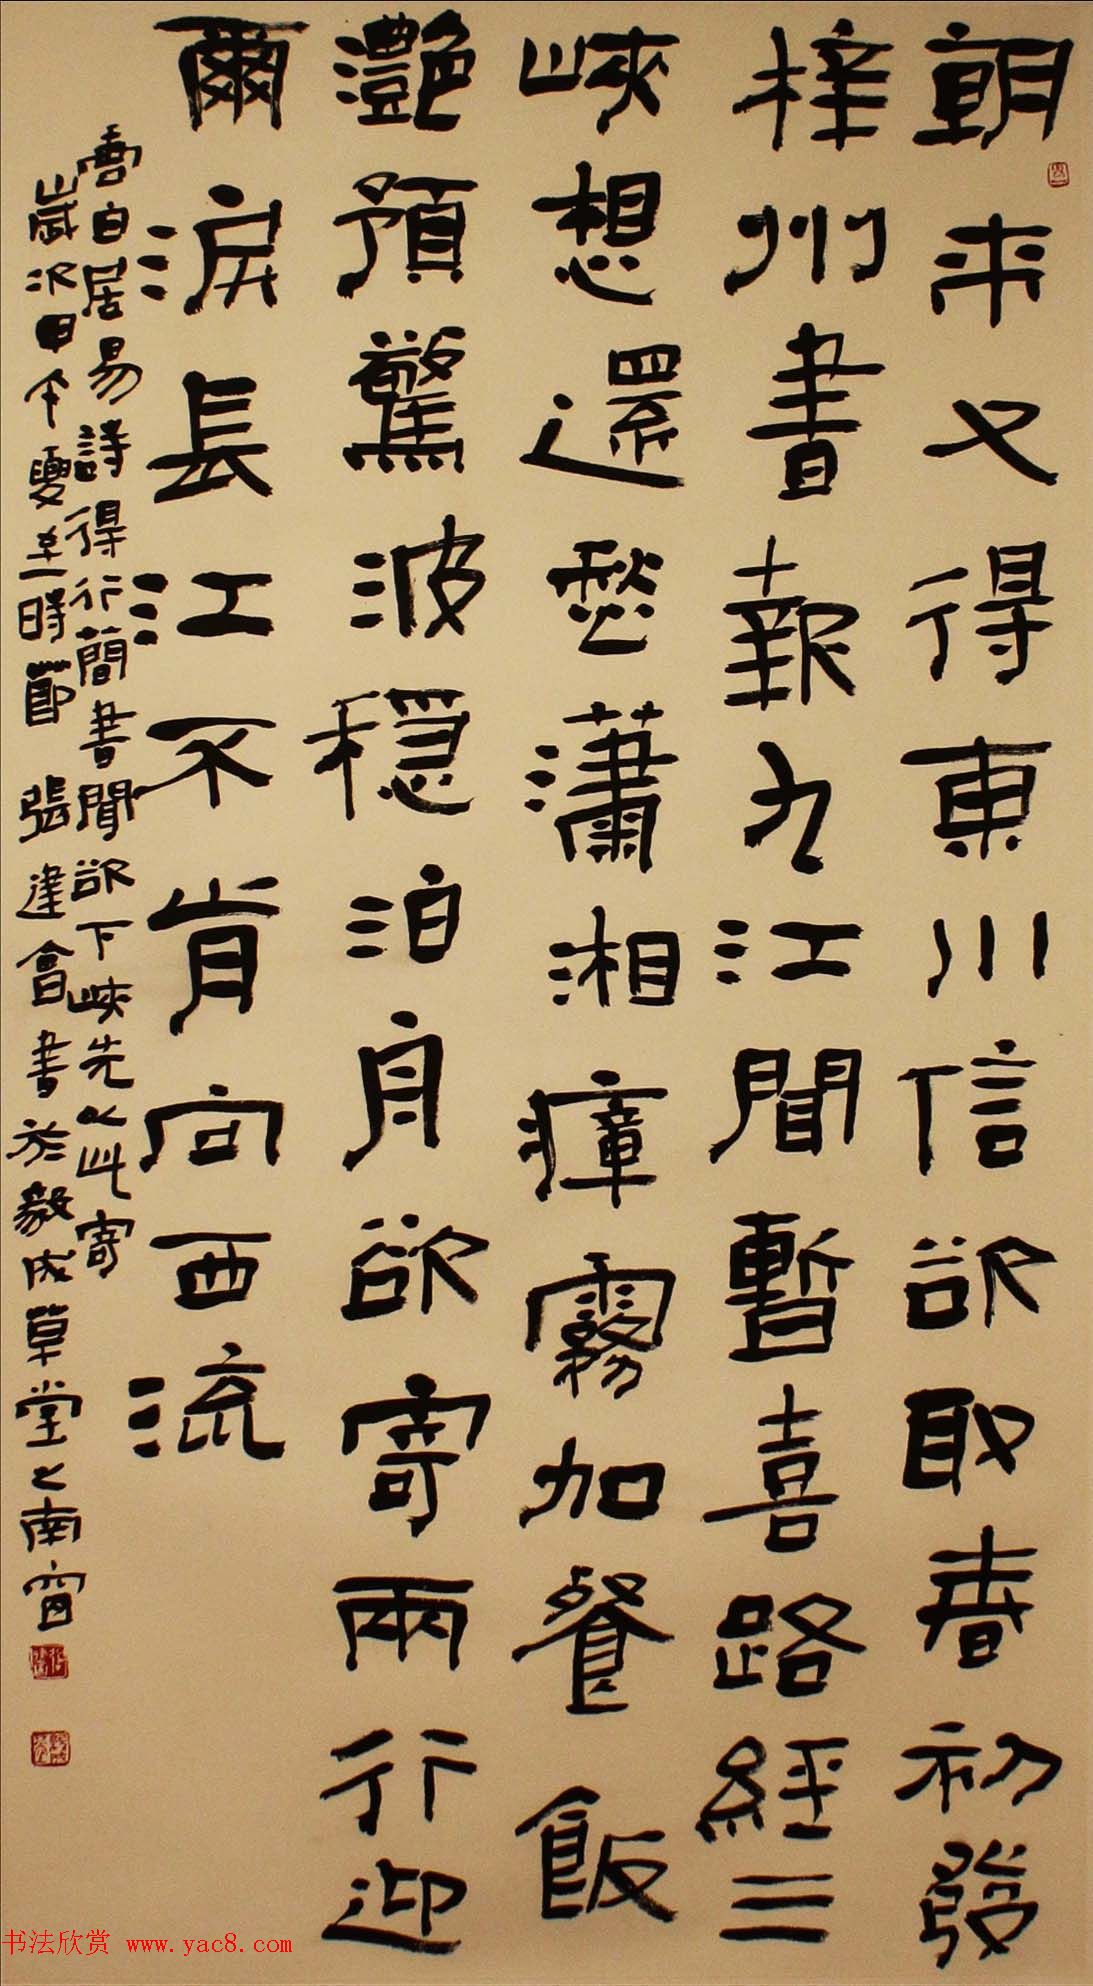 朝來又得東川信欲取春初發
梓州書報九江聞暫喜路經三
峽想還愁瀟湘瘴霧加餐飯
灔預驚波穩泊舟欲寄兩行迎
爾淚長江不肯向西流
白居易詩得行簡書聞欲下峽先以此寄
歲次甲午夏至時節 張建會書於毅成草堂之南窗
书法欣赏 www.yac8.com